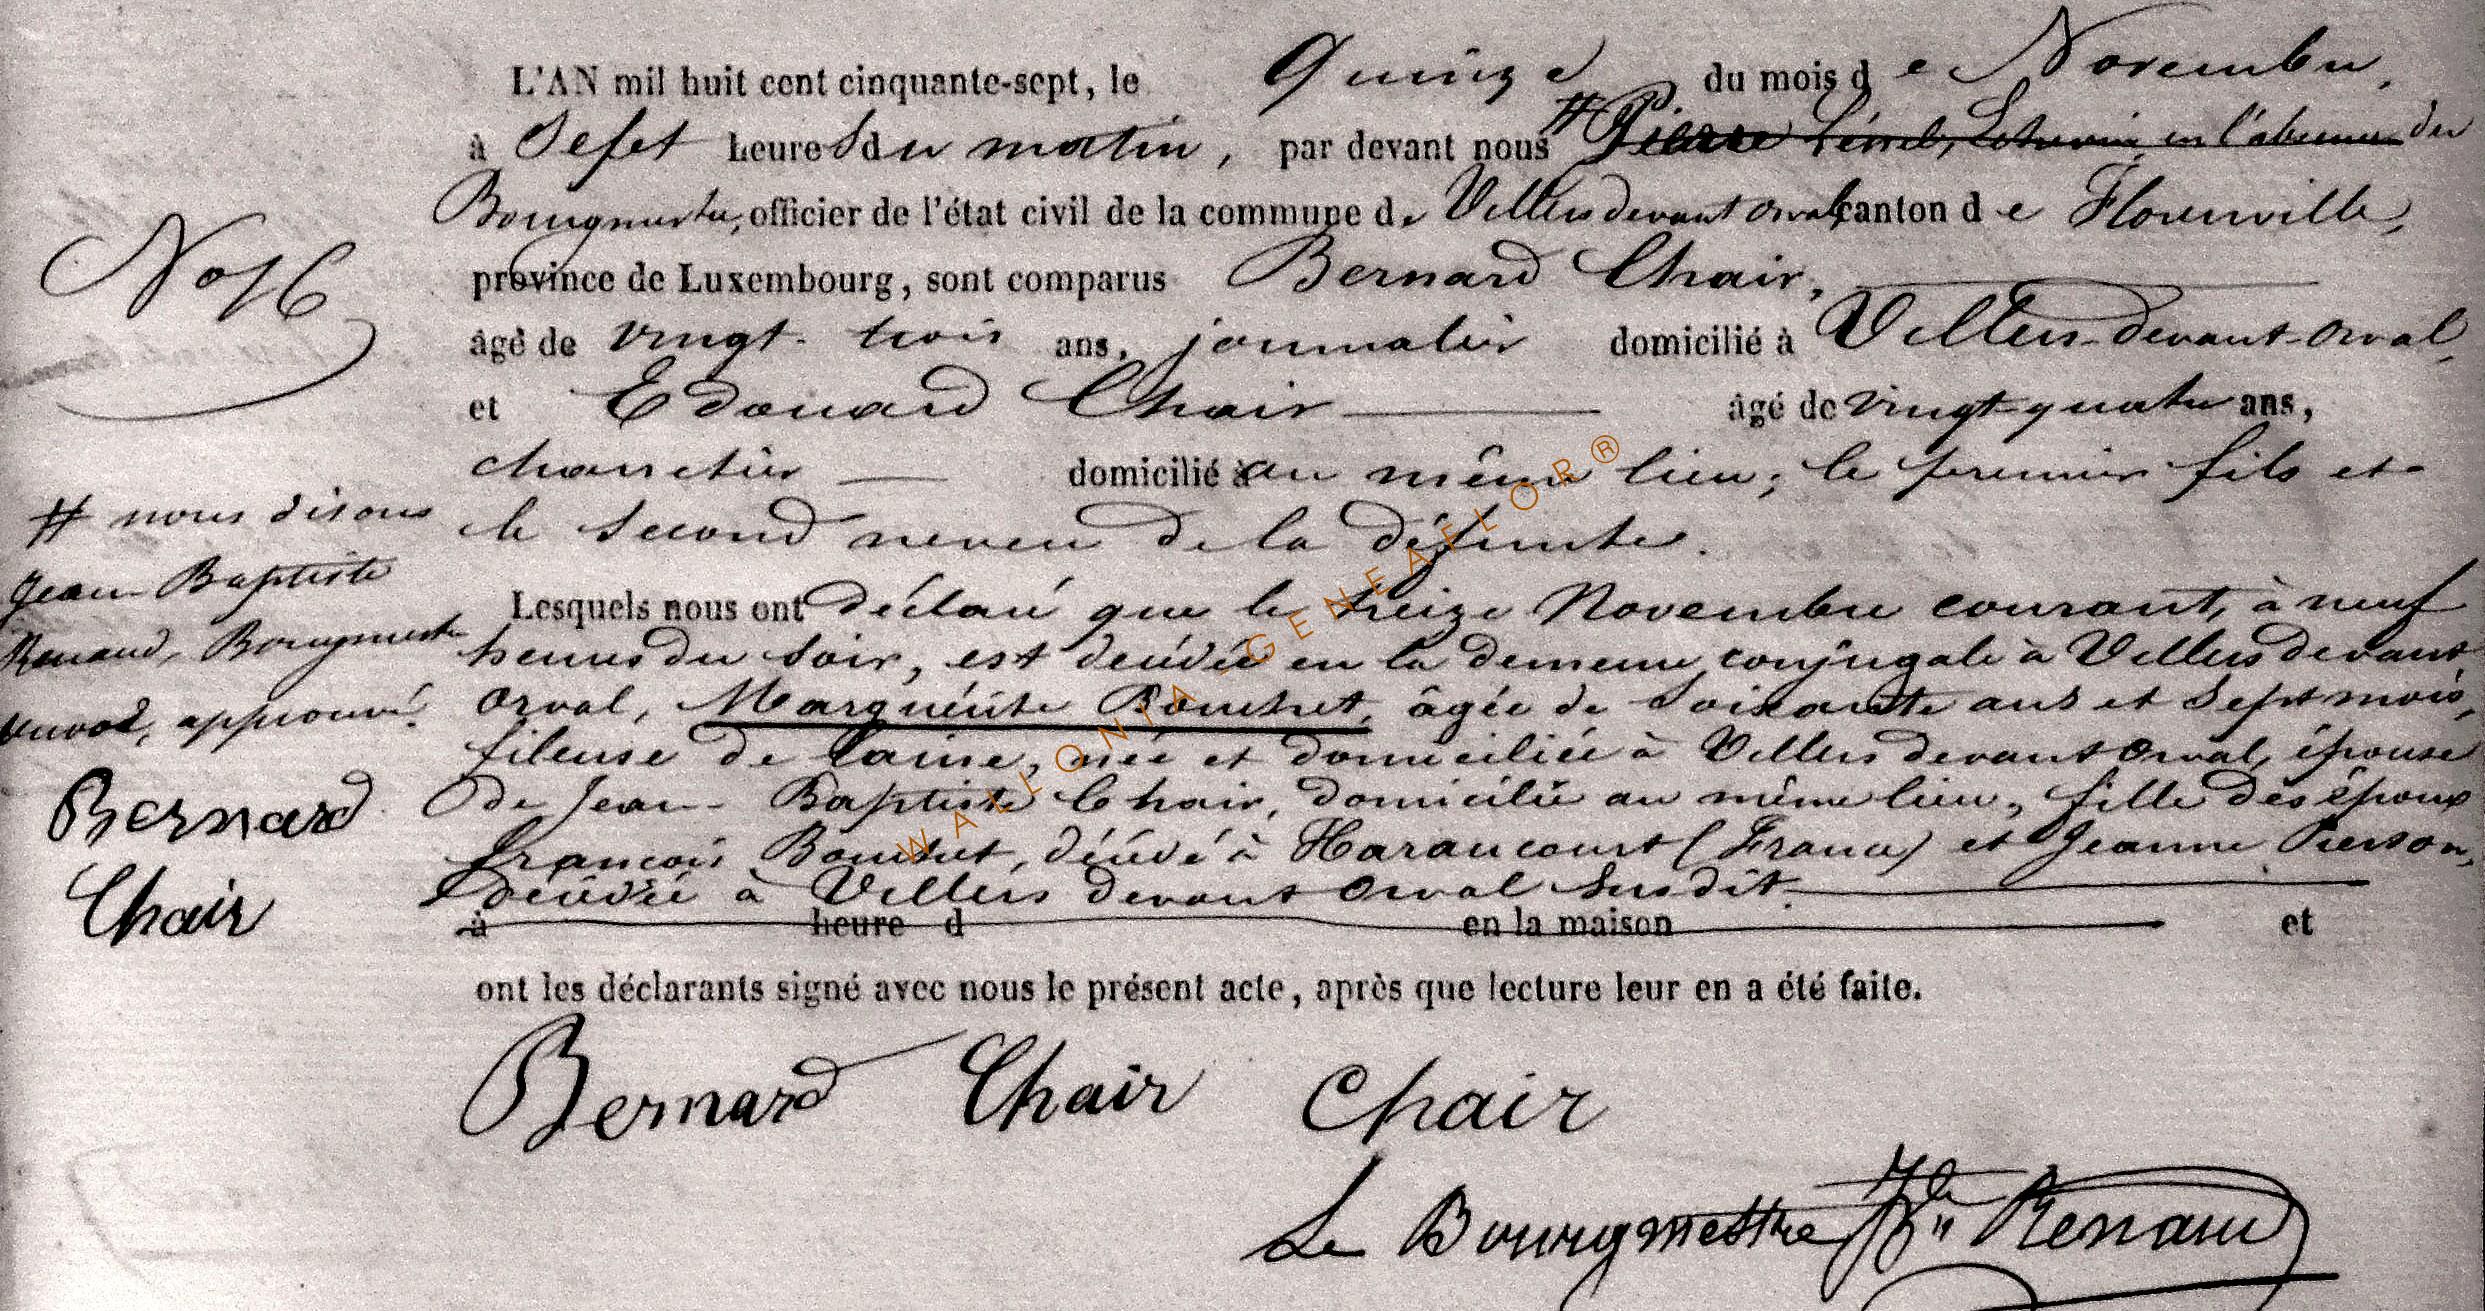 L'AN mil huit cent cinquante-sept, le Quinze du mois de Novembre,
à Sept heures du matin, par devant nous # Pierre Echevin en l'absence du
Bourgmestre, officier de l'état civil de la commune de Villers devant orval canton de Florenville,
province de Luxembourg, sont comparus Bernard Chair,
âgé de vingt-trois ans, journalier domicilié à Villers-devant-orval,
et Edouard Chair âgé de vingt quatre ans,
charretier domicilié à au même lieu; le premier fils et
le second neveu de la défunte.
Lesquels nous ont déclaré que le treize Novembre courant, à neuf
heures du soir, est décédée en la demeure conjugale à Villers devant
orval, Marguérite Bouchet, âgée de soixante ans et sept mois,
fileuse de laine, née et domiciliée à Villers devant orval, épouse
de Jean-Baptiste Chair, domicilié au même lieu, fille des époux
françois Bouchet, décédé à Haraucourt (France) et Jeanne Pierson,
décédée à Villers devant orval susdit.
à heure d en la maison et
ont les déclarants signé avec nous le présent acte, après que lecture leur en a été faite.
No 16
# nous disons
Jean-Baptiste
Renaud, Bourgmestre
approuvé.
Bernard
Chair
Bernard Chair Chair
Le Bourgmestre Jn Bte Renaud
WALLONIA-GENEAFLOR®